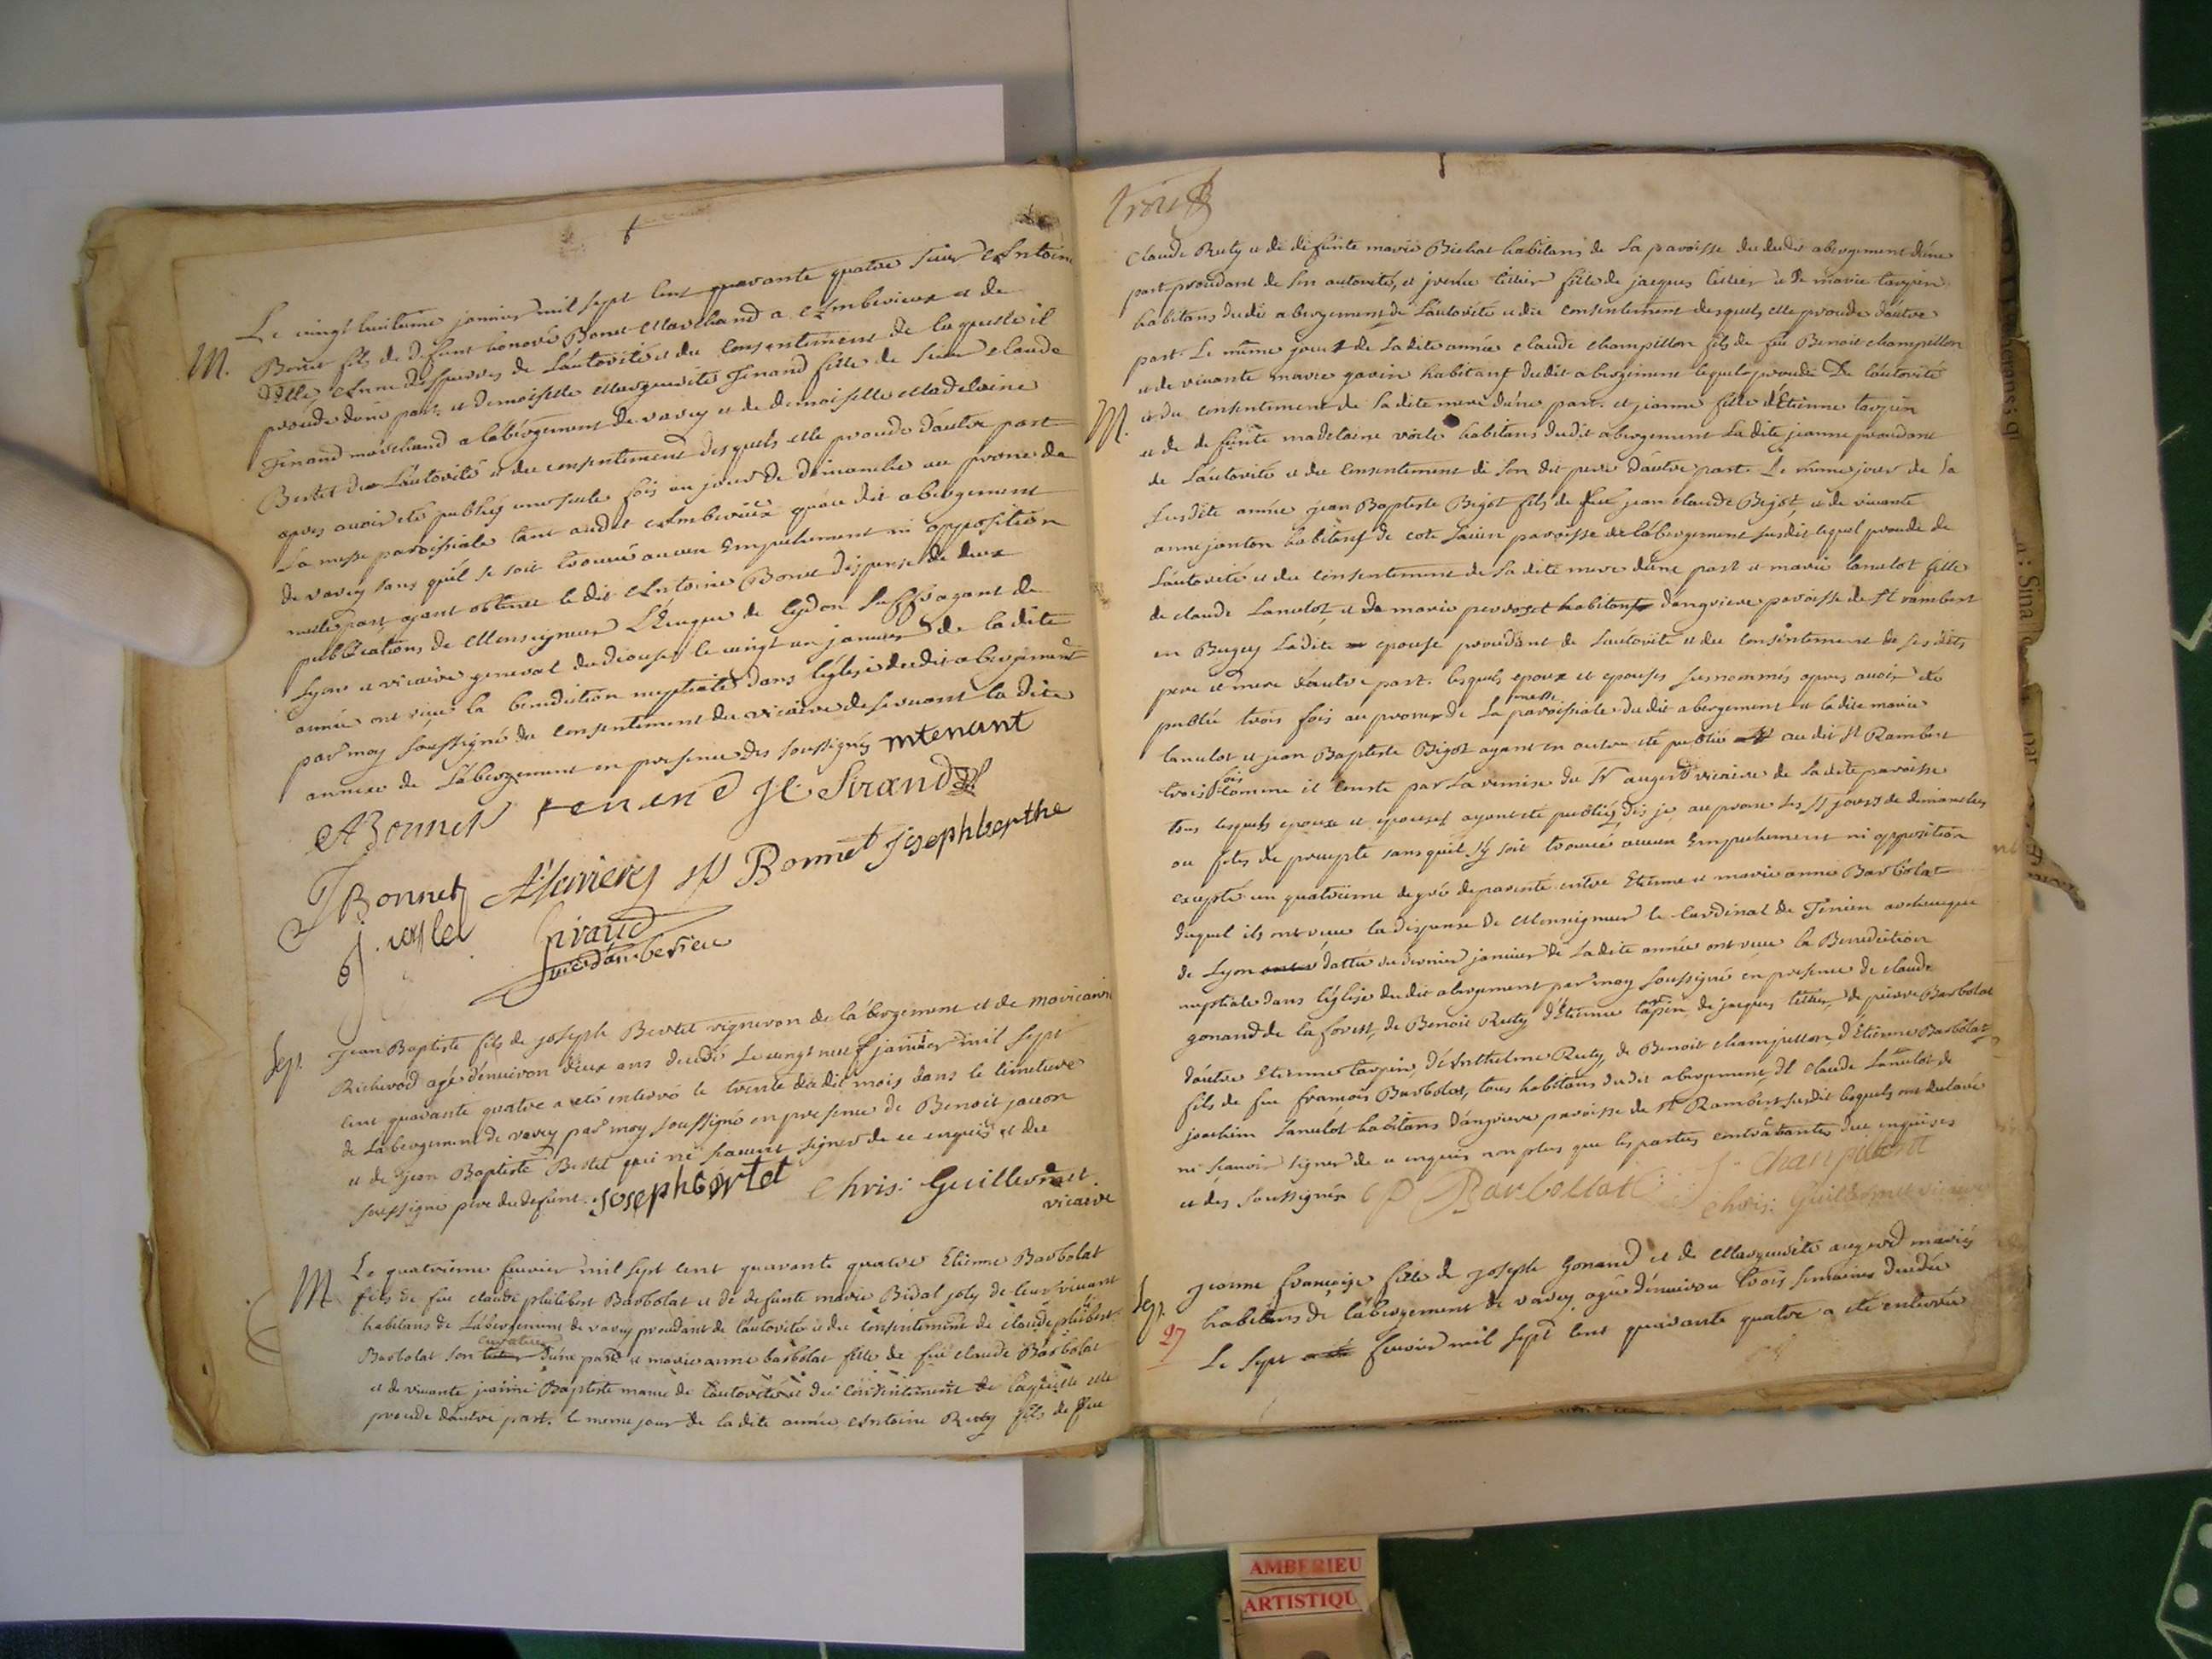 Le vingt huitieme janvier mil sept cent quarante quatre sieur Antoine
M. Bonet fils de defunt honoré Bonet Marchand a Amberieux et de
dlle Anne de l'autorité et du consentement de laquelle il
procede d'une part, et demoiselle Marguerite Tenand fille de sieur Claude
Tenand marchand a labergement de varey et de demoiselle Madelaine
Bertet de l'autorité et du consentement desquels elle procede d'autre part
apres avoir été publiés une seule fois un jour de dimanche au prone de
la messe paroissiale tant audit Amberieux qu'au dit abergement
de varey sans qu'il se soit trouvé aucun empechement ni opposition
nulle part, ayant obtenu le dit Antoine Bonet dispense de deux
publications de Monseigneur L'Eveque de suffragant de
Lyon et vicaire general du diocese, le vingt un janvier de la dite
année ont reçu la benediction nuptiale dans l'église dudit abergement
par moy soussigné du consentement du vicaire desservant la dite
annexe de Labergement en presence des soussignés mtenant
ABonnet tenend JC Sirand
JBonnet Bonnet Josephberthe
Giraud
curé d'amberieu
Sep. Jean Baptiste fils de joseph Bertet vigneron de labergement et de marieanne
Richerod agé d'environ deux ans decedé le vingt neuf janvier mil sept
cent quarante quatre a eté enterré le trente dudit mois dans le cimetiere
de Labergement de varey par moy soussigné en presence de Benoit jacon
et de Jean Baptiste Bertet qui ne sçavent signer de ce enquis et du
soussigné pere du defunt. Josephbertet Chris: Guillermet
vicaire
M Le quatrieme fevrier mil sept cent quarante quatre Etienne Barbolat
fils de feu claude philibert Barbolat et de defunte marie Bidal joly de leur vivant
habitans de Labergement de varey procedant de l'autorité et du consentement de claude philibert
curateur
Barbolat son d'une part et marie anne barbolat fille de feu claude Barbolat
et de vivante jeanne Baptiste mame de l'autorité et du consentement de laquelle elle
procede d'autre part. le meme jour de la dite année Antoine Ruty fils de feu
trois
Claude Ruty et de defunte marie Bichat habitans de la paroisse du dudit abergement d'une
part procedant de son autorité, et jeanne tissier fille de jacques tissier et de marie tarpin
habitans dudit abergement de l'autorité et du consentement desquels elle procede d'autre
part. Le même jour de la dite année claude champillon fils de feu Benoit champillon
et de vivante marie gavin habitant dudit abergement lequel procede De l'autorité
M. et du consentement de la dite mere d'une part. et jeanne fille d'Etienne tarpin
et de defunte madelaine habitans dudit abergement la dite jeanne procedant
de l'autorité et du consentement de son dit pere d'autre part. Le même jour de la
susdite année jean Baptiste Bigot fils de feu jean claude Bigot, et de vivante
anne janton habitant de cote savin paroisse de labergement susdit lequel procede de
l'autorité et du consentement de sa dite mere d'une part et marie lanulot fille
de claude Lanulot et de marie perroset habitans d'angrieres paroisse de St rambert
en Bugey la dite epouse procedant de l'autorité et du consentement de ses dits
pere et mere d'autre part. lesquels epoux et epouses susnommés apres avoir été
messe
publié trois fois au prone de la paroissiale dudit abergement et la dite marie
lanulot et jean Baptiste Bigot ayant en outre été publié au dit St Rambert
fois
trois comme il conste par la remise du Sr augerd vicaire de la dite paroisse
tous lesquels epoux et epouses ayant été publiés, dis je, au prone les jours de dimanches
ou fetes de precepte sans qu'il s'y soit trouvé aucun empechement ni opposition
excepté un quatrieme degré de parenté entre Etienne et marie anne Barbolat
duquel ils ont reçu la dispense de Monseigneur le Cardinal de Tencin archeveque
de Lyon dattée du dernier janvier de la dite année ont reçu la Benediction
nuptiale dans l'église dudit abergement par moy soussigné en presence de claude
gonand de la forest, de Benoit Ruty d'Etienne tarpin de jacques tissier, de pierre Barbolat
d'autre Etienne tarpin, d'Anthelme Ruty, de Benoit champillon, d'Etienne Barbolat
fils de feu françois Barbolat, tous habitans dudit abergement, de Claude Lanulot de
joachim lanulot habitans d'angrieres paroisse de St Rambert susdit lesquels ont declaré
ne sçavoir signer de ce enquis non plus que les parties contractantes due enquises
et des soussignés P Barbollat J. Champillon
Chris: Guillermet vicaire
Sep. Jeanne françoise fille de joseph Gonand et de Marguerite augerd mariés
27 habitans de labergement de varey agée d'environ trois semaines decedée
Le sept fevrier mil sept cent quarante quatre a eté enterrée
AMBERIEU
ARTISTIQU